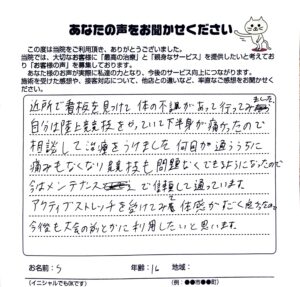 あなたの声をお聞かせください
この度は当院をご利用頂き、ありがとうございました。
当院では、大切なお客様に「最高の治療」と「親身なサービス」を提供したいと考えており「お客様の声」を募集しております。
あなた様のお声が実際に私達の力となり、今後のサービス向上につながります。
施術を受けた感想や、技術対応について、他店との違いなど、率直なご感想をお聞かせください。
近所で看板を見つけて体の不調があって行ってみました。
自分は陸上競技をやっていて下半身が痛かったので
相談して治療をうけました 何回が通ううちに
痛みもなくなり競技も問題なくできるようになったので
今はメンテナンスで信頼して通っています。
アクティブストレッチを受けてみて体感がすごく良かったので
今後も大会の前とかに利用したいと思います。
お名前：S 年齢：16 地域：
(イニシャルでもOKです) (例：●●市●●町)